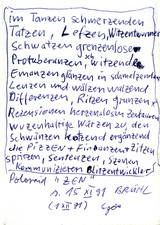 im Tanzen schmerzenden
Tatzen, Lefzen, Witzentwurmer
Schwatzen grenzenlose
Protuberanzen, witzend
Emanzen glänzen in schmelzenden
Lenzen und wälzen walzend
Differenzen, Ritzen grenzen,
Rezensionen herzenlosen Zentauren
wuzenhaltige Warzen zu den
Schwänzen kotzend ergänzend
die Pizzen + Finanzen Zitzen
spitzen, sentenzen, Szenen
kommunizieren Blitzentwickler
Polaroid "ZEN"
n. 15 XI 91 BRÜHL